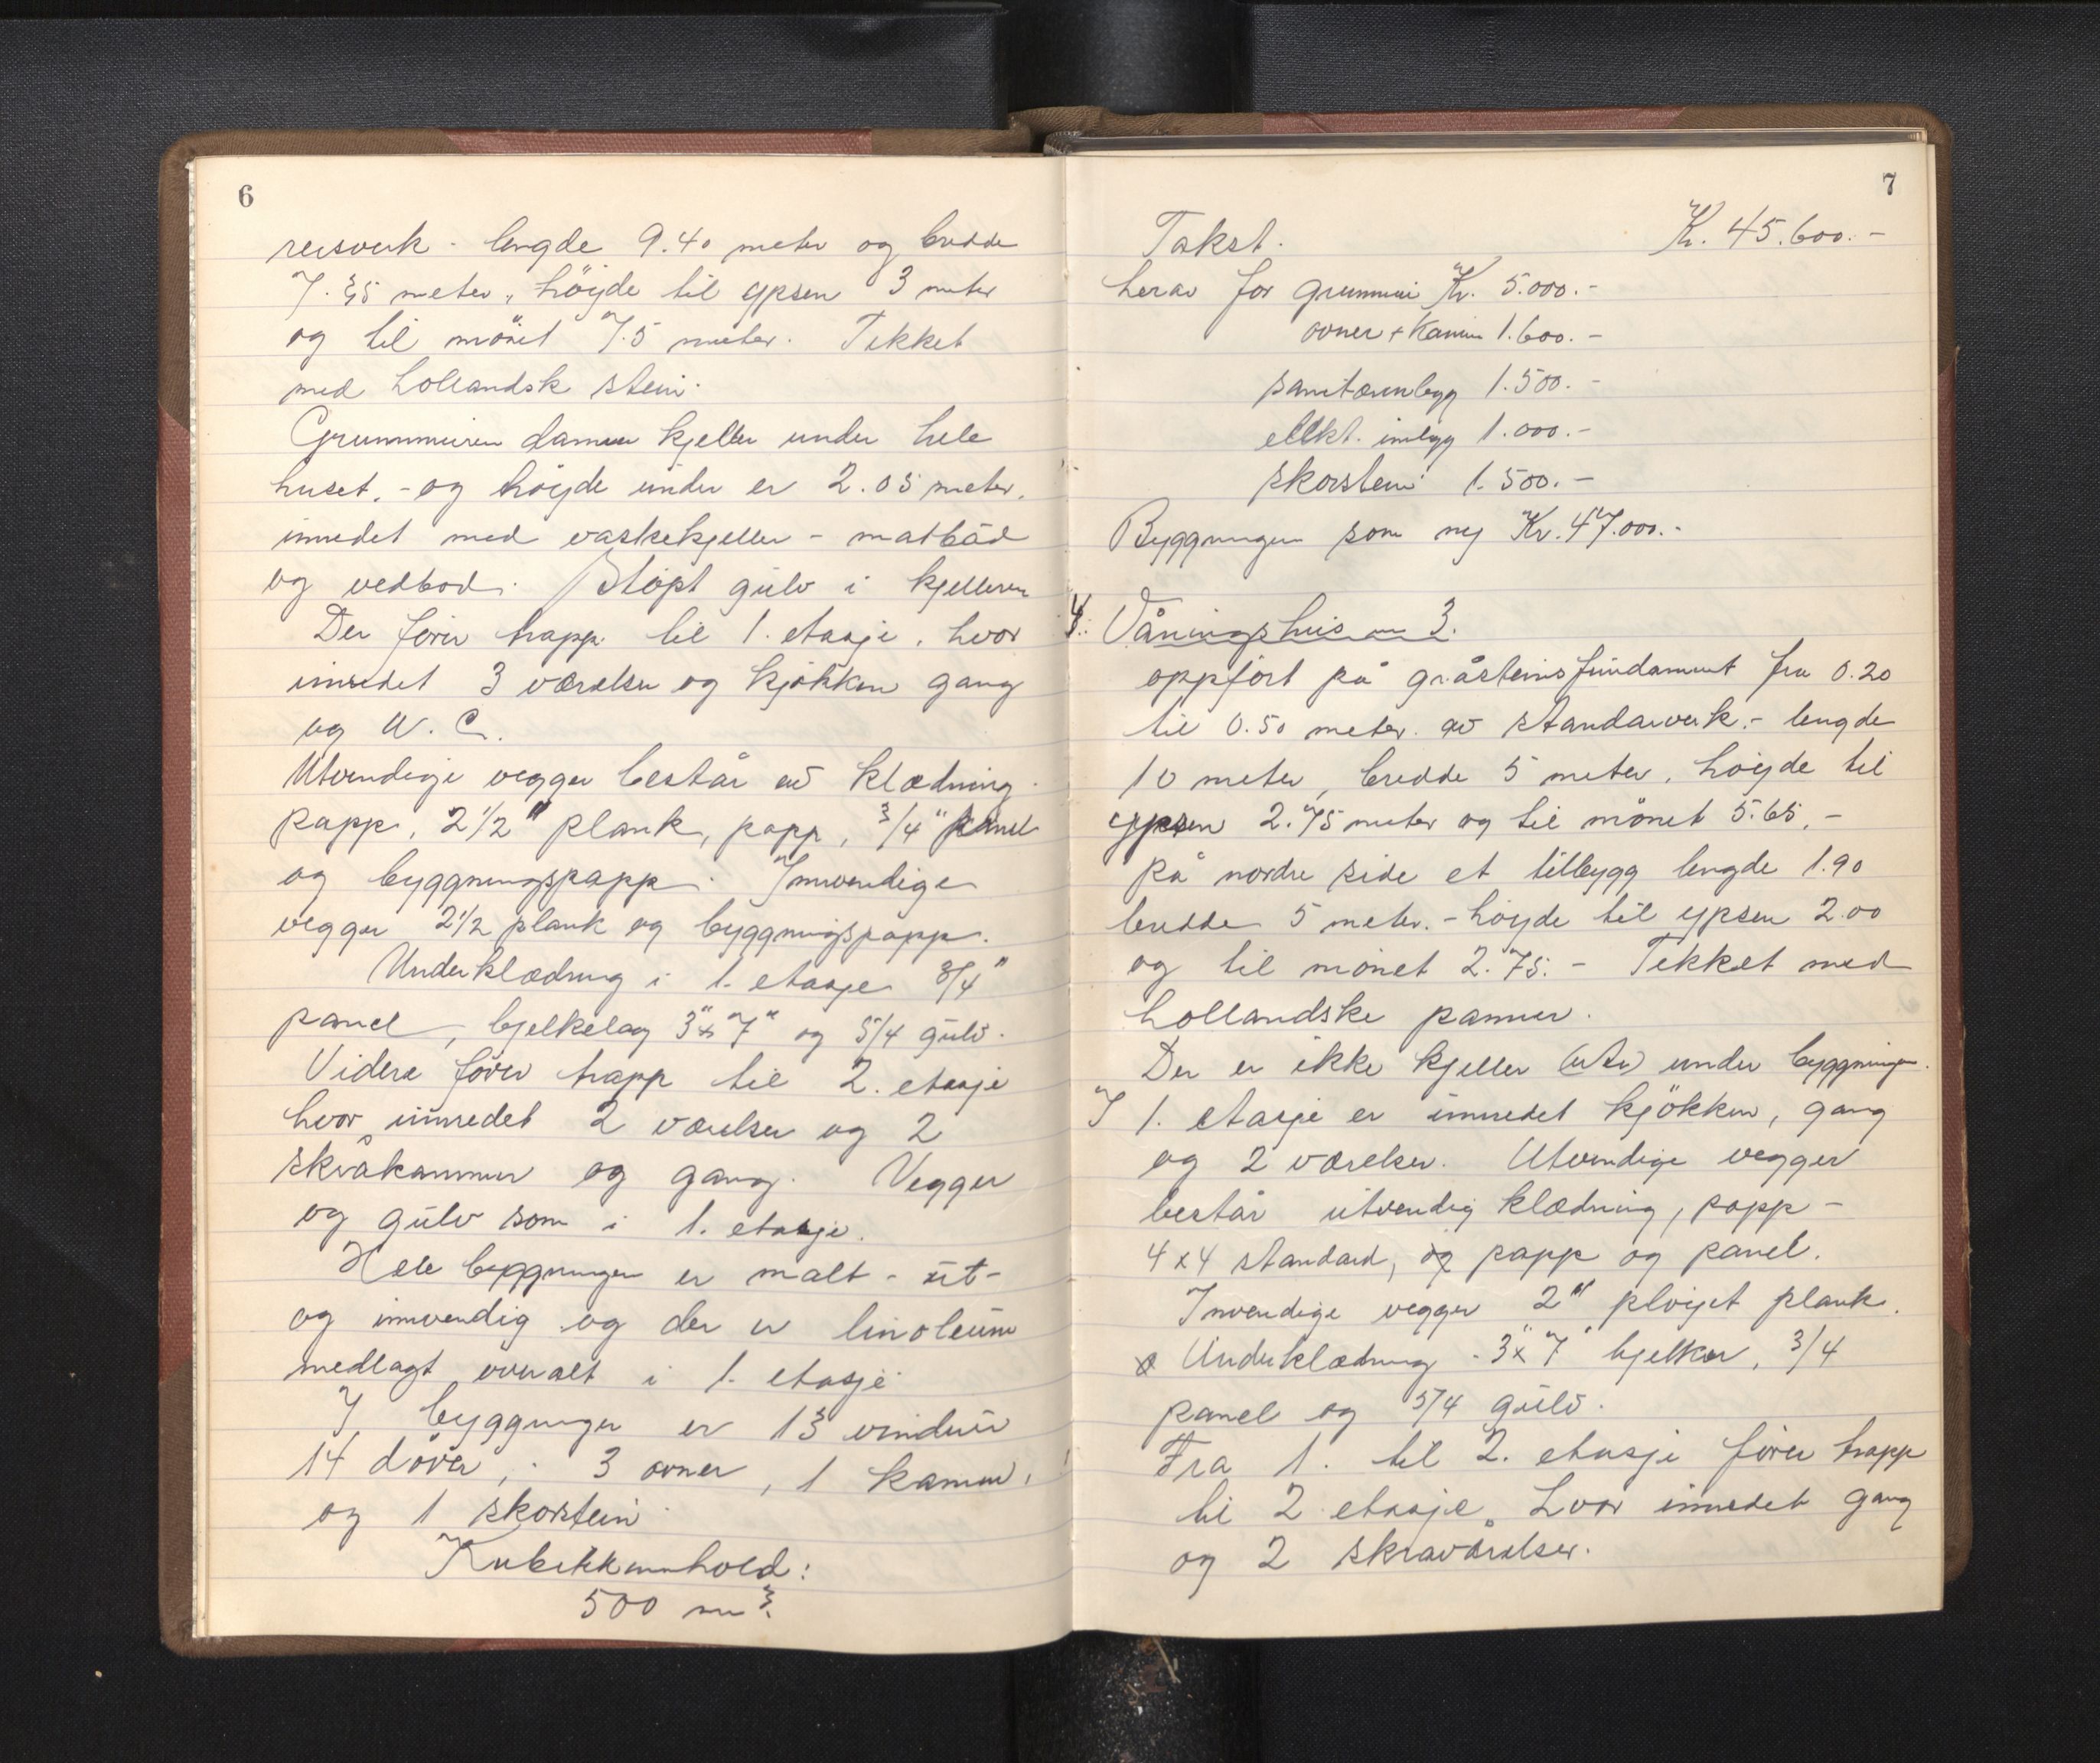 6
reisverk - lengde 9.40 meter og bredde
7.35 meter, høyde til gpsen 3 meter
og til mønet 7.5 meter. Tekket
med hollandsk stein.
Grunnmuren danner kjeller under hele
huset, - og høyde under er 2.05 meter,
innredet med vaskekjeller - matbod
og vedbod. Støpt gulv i kjelleren
Der fører trapp til 1. etasje, hvor
innredet 3 værelser og kjøkken gang
og W.C.
Utvendige vegger består av klædning
papp, 2 1/2" plank, papp, 3/4" panel
og byggningspapp. Innvendige
vegger 2 1/2 plank og byggningspapp.
Underklædning i 1. etasje 3/4"
panel, bjelkelag 3"x7" og 5/4 gulv.
Videre fører trapp til 2. etasje
hvor innredet 2 værelser og 2
skråkammer og gang. Vegger
og gulv som i 1. etasje.
Hele byggningen er malt - ut-
og innvendig og der er linoleum
nedlagt overalt i 1. etasje
I byggningen er 13 vinduer
14 dører, 3 ovner, 1 kamin,
og 1 skorstein
Kubikkinnhold:
500 m3.
7
Takst. Kr. 45.600.-
herav for grunnmur Kr. 5.000.-
ovner + Kamin 1.600.-
sanitæranlegg 1.500.-
elekt. innlegg 1.000.-
skorstein 1.500.-
Byggningen som ny Kr. 47.000.-
4. Våningshus nr 3.
oppført på gråsteinsfundament fra 0.20
til 0.50 meter av standarverk.- lengde
10 meter, bredde 5 meter, høyde til
gpsen 2.75 meter og til mønet 5.65,-
På nordre side et tilbygg lengde 1.90
bredde 5 meter.- høyde til gpsen 2.00
og til mønet 2.75.- Tekket med
hollandske panner.
Der er ikke kjeller under byggningen.
I 1. etasje er innredet kjøkken, gang
og 2 værelser. Utvendige vegger
består utvendig klædning, papp -
4x4 standard, og papp og panel.
Innvendige vegger 2" pløyet plank.
Underklædning - 3"x7" bjelker, 3/4
panel og 5/4 gulv.
Fra 1. til 2. etasje fører trapp
til 2 etasje, hvor innredet gang
og 2 skråværelser.